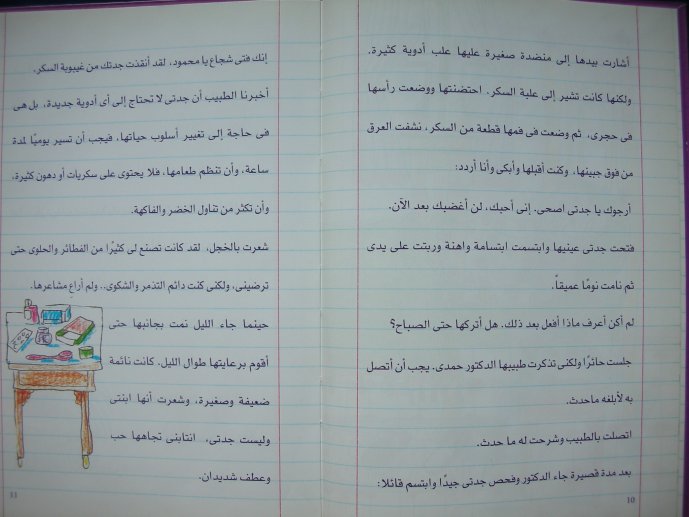 أشارت بيدها إلى منضدة صغيرة عليها علب أدوية كثيرة.
ولكنها كانت تشير إلى علبة السكر. احتضنتها ووضعت رأسها
فى حجرى، ثم وضعت فى فمها قطعة من السكر، نشفت العرق
من فوق جبينها، وكنت أقبلها وأبكى وأنا أردد:
أرجوك يا جدتى اصحى. إنى أحبك، لن أغضبك بعد الآن.
فتحت جدتى عينيها وابتسمت ابتسامة واهنة وربتت على يدى
ثم نامت نومًا عميقاً.
لم أكن أعرف ماذا أفعل بعد ذلك. هل أتركها حتى الصباح؟
جلست حائرًا ولكنى تذكرت طبيبها الدكتور حمدى. يجب أن أتصل
به لأبلغه ماحدث.
اتصلت بالطبيب وشرحت له ما حدث.
بعد مدة قصيرة جاء الدكتور وفحص جدتى جيدًا وابتسم قائلا:
10
إنك فتى شجاع يا محمود، لقد أنقذت جدتك من غيبوبة السكر.
أخبرنا الطبيب أن جدتى لا تحتاج إلى أى أدوية جديدة، بل هى
فى حاجة إلى تغيير أسلوب حياتها، فيجب أن تسير يوميًا لمدة
ساعة، وأن تنظم طعامها، فلا يحتوى على سكريات أو دهون كثيرة،
وأن تكثر من تناول الخضر والفاكهة.
شعرت بالخجل، لقد كانت تصنع لى كثيرًا من الفطائر والحلوى حتى
ترضينى، ولكنى كنت دائم التذمر والشكوى.. ولم أراع مشاعرها.
حينما جاء الليل نمت بجانبها حتى
أقوم برعايتها طوال الليل. كانت نائمة
ضعيفة وصغيرة، وشعرت أنها ابنتى
وليست جدتى، انتابنى تجاهها حب
وعطف شديدان.
11